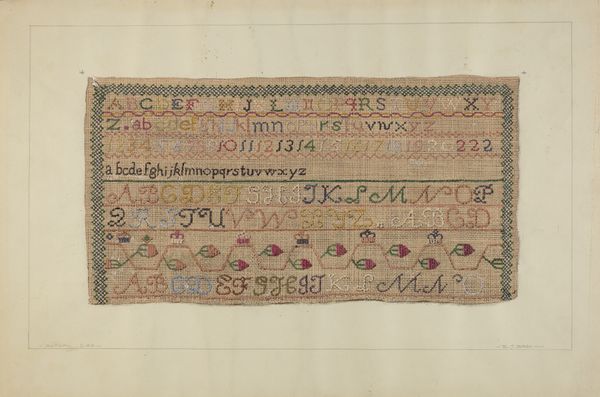 A B C D E F H I J L M N O P Q R S T U V W X Y
Z . a b c d e f g h i j k l m n o p q r s t u v w x y z
1 2 3 4 5 6 7 8 9 10 11 12 13 14 15 16 17 18 19 20 2 2 2
a b c d e f g h i j k l m n o p q r s t u v w x y z
A B C D E F G H I J K L M N O P
Q R S T U V W X Y Z . A B C D
A B C D E F G H I J K L M N O